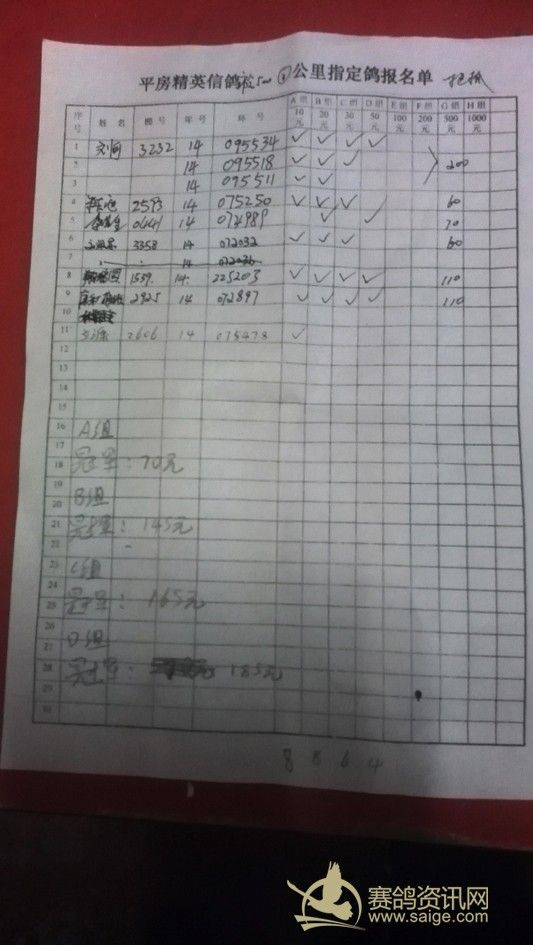 平房精英信鸽 500 公里指定鸽报名单
序号 姓名 棚号 年号 环号 A组10元 B组20元 C组30元 D组50元 E组100元 F组200元 G组500元 H组1000元
1 3232 14 095534 ✓ ✓ ✓ ✓
2 14 095518 ✓ ✓ ✓ 200
3 14 095511 ✓ ✓
4 2593 14 075250 ✓ ✓ ✓ 60
5 0441 14 074989 ✓ ✓ 70
6 3358 14 072032 ✓ ✓ ✓ 60
7
8 1539. 14. 225203 ✓ ✓ ✓ ✓ 110
9 2925 14 072897 ✓ ✓ ✓ ✓ 110
10
11 2606 14 075478 ✓
12
13
14
15
16 A组
17
18 冠军：70元
19
20 B组
21 冠军：145元
22
23 C组
24
25 冠军：165元
26
27 D组
28 冠军： 185元
29
30
8 8 6 4
赛鸽资讯网
www.saige.com